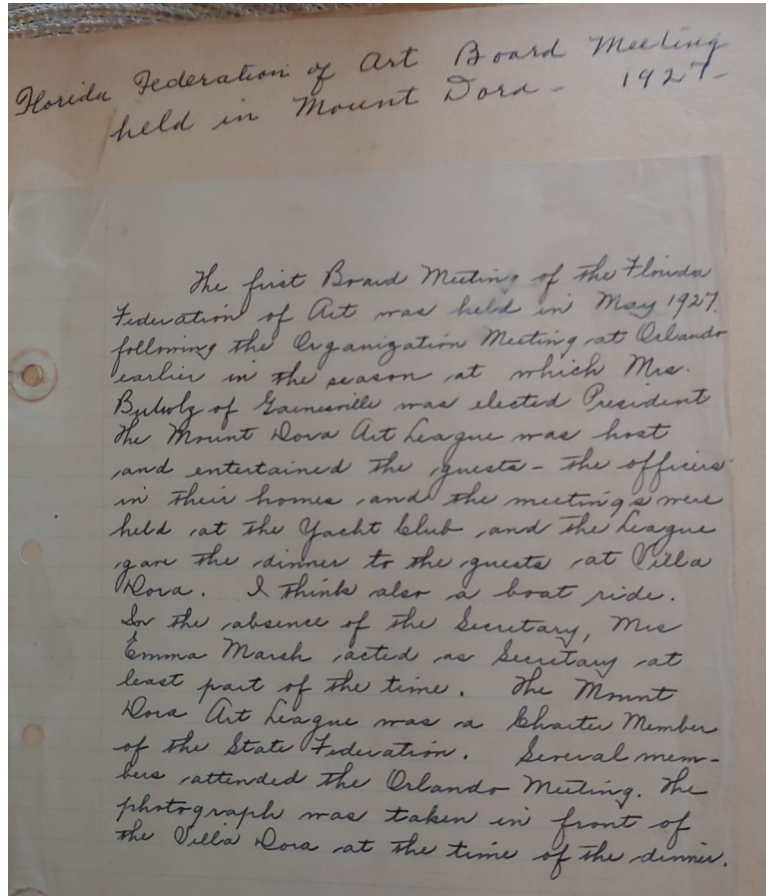 Florida Federation of Art Board Meeting
held in Mount Dora - 1927-
The first Board Meeting of the Florida
Federation of Art was held in May 1927.
following the Organization Meeting at Orlando
earlier in the season at which Mrs.
of Gainesville was elected President
The Mount Dora Art League was host
and entertained the guests - the officers
in their homes and the meetings were
held at the Yacht Club and the League
gave the dinner to the guests at Villa
Dora. I think also a boat ride.
In the absence of the Secretary, Mrs
Emma Marsh acted as Secretary at
least part of the time. The Mount
Dora Art League was a Charter Member
of the State Federation. Several mem-
bers attended the Orlando Meeting. The
photograph was taken in front of
the Villa Dora at the time of the dinner.